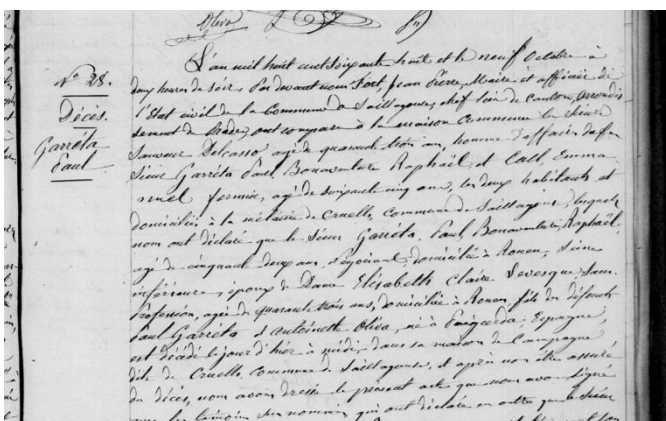 Oliva
Nº 28.
Décès.
Garréta
Paul
L'an mil huit cent soixante huit et le neuf Octobre à
deux heures du soir Par devant nous Fort, Jean Pierre, Maire et officier de
l'Etat civil de la Commune de Saillagouse, chef lieu de canton, arrondis
sement de Prades, ont comparu à la maison Commune les Sieurs
Sauveur Delcasso agé de quarante trois ans, homme d'affaires du feu
Sieur Garréta Paul Bonaventure Raphaël, et Call, Emma
nuel fermier, agé de soixante cinq ans, les deux habitants et
domiciliés à la métairie de Cruells, Commune de Saillagouse, lesquels
nous ont déclaré que le Sieur Garréta, Paul, Bonaventure, Raphaël,
agé de cinquante deux ans, Négociant, domicilié à Rouen, Seine
inférieure, époux de Dame Elisabeth Claire Levesque Sans
Profession, agée de quarante trois ans, domiciliée à Rouen, fils des défunts
Paul Garréta et Antoinette Oliva, né à Puigcerda, Espagne,
est décédé le jour d'hier à midi, dans sa maison de Campagne
dite de Cruells Commune de Saillagouse, et après nous être assuré
du décès, nous avons dressé le présent acte que nous avons signé
les témoins sus nommés, qui ont déclaré en outre que le Sieur